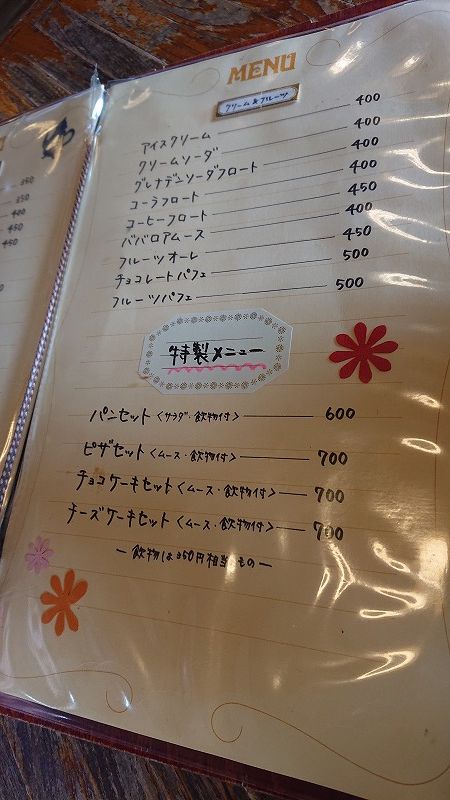 350
350
400
450
450
MENU
クリーム&フルーツ
アイスクリーム 400
クリームソーダ 400
グレナデンソーダフロート 400
コーラフロート 400
コーヒーフロート 450
ババロアムース 400
フルーツオーレ 450
チョコレートパフェ 500
フルーツパフェ 500
特製メニュー
パンセット〈サラダ・飲物付〉 600
ピザセット〈ムース・飲物付〉 700
チョコケーキセット〈ムース・飲物付〉 700
チーズケーキセット〈ムース・飲物付〉 700
― 飲物は350円相当のもの ―